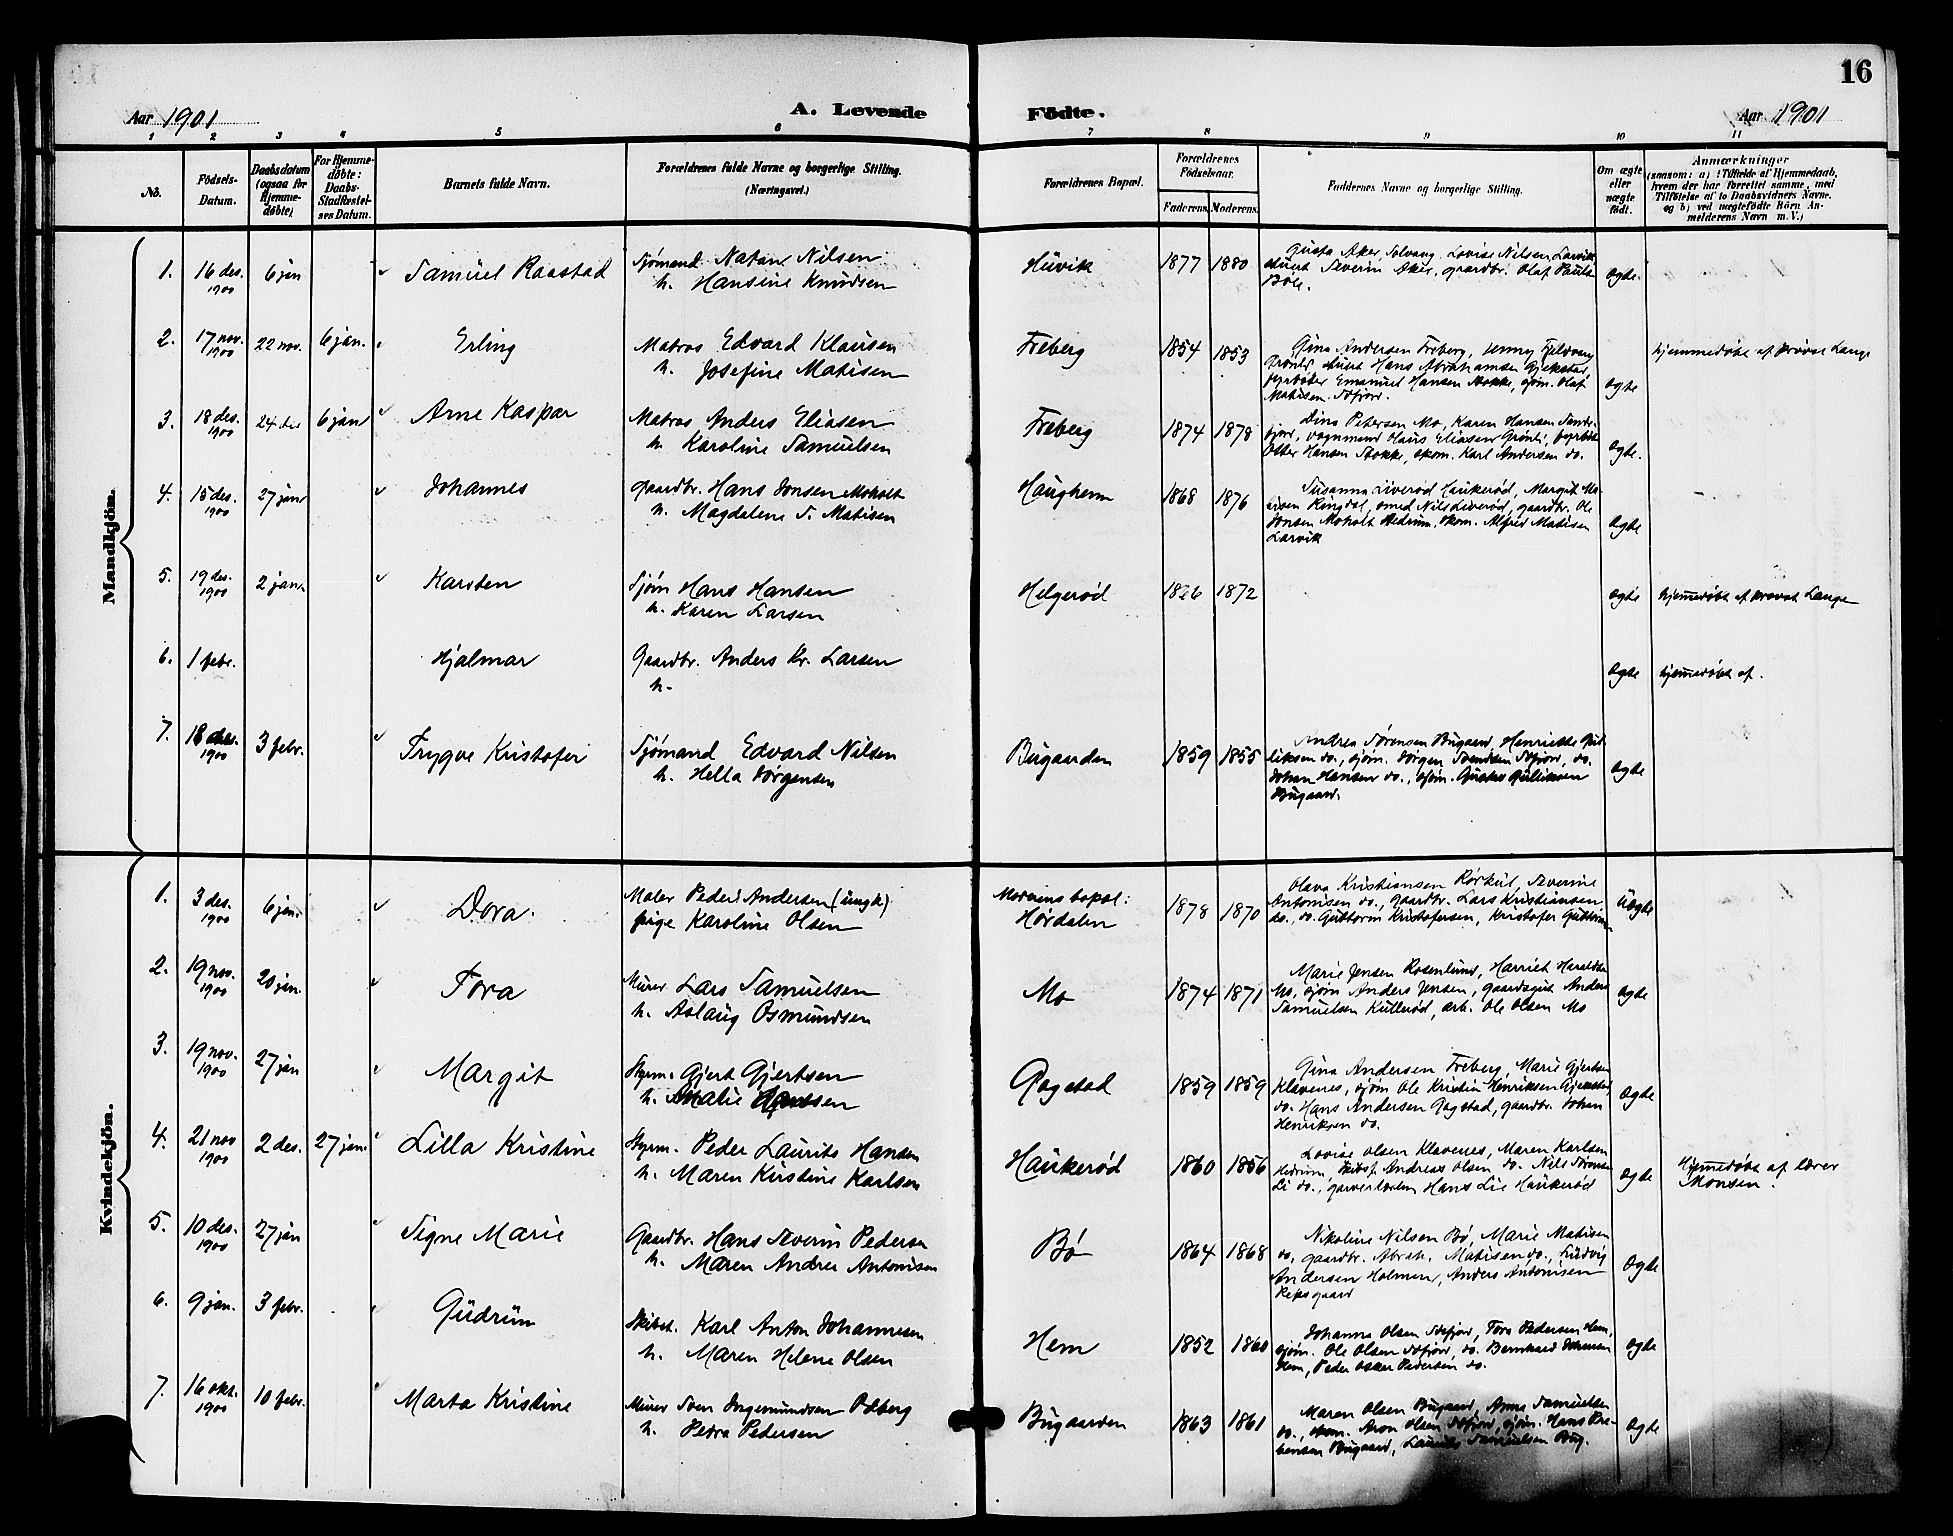 16
Aar 1901
A. Levende
Fødte.
Aar 1901
1 2 3 4 5 6 7 8 9 10 11
No.
Födsels-Datum.
Daabsdatum (ogsaa for Hjemme-døbte)
For Hjemme-døbte: Daabs-Stadfæstel-ses Datum.
Barnets fulde Navn.
Forældrenes fulde Navne og borgerlige Stilling. (Næringsvei.)
Forældrenes Bopæl.
Forældrenes Födselsaar.
Faderens. Moderens.
Faddernes Navne og borgerlige Stilling.
Om ægte eller uægte født.
Anmærkninger
(saasom: a) i Tilfælde af Hjemmedaab, hvem der har forrettet samme, med Tilføielse af to Daabsvidners Navne. og b) ved uægtefødte Børn Anmelderens Navn m. V.)
Mandkjön.
1. 16 des. 1900 6 jan Samuel Raastad Sjømand Natan Nilsen
h. Hansine Knudsen
Huvik 1877 1880 Gusta Aker, Solvang, Lovise Nilsen Larvik
Severin Aker, gaardbr. Olaf Pauls
Bøle. ægte.
2. 17 nov. 1900 22 nov. 6 jan. Erling Matros Edvard Klausen
h. Josefine Matisen
Freberg 1854 1853 Gina Andersen Freberg, Jenny Fjeldvang
Hans Abrahamsen Gjekstad,
fyrbøter Emanuel Hansen Stokke, sjøm. Olaf
Matisen Sdfjord. ægte
hjemmedøbt af provst Lange
3. 18 des. 1900 24 des 6 jan Arne Kaspar Matros Anders Eliasen
h. Karoline Samuelsen
Freberg 1874 1878 Dina Petersen Mo, Karen Hansen Sande-
fjord, vognmand Hans Eliasen Grønli, fyrbøt
Otter Hansen Stokke, skom. Karl Andersen do. ægte.
4. 15 des. 1900 27 jan Johannes Gaardbr. Hans Jonsen Moholt
h. Magdalene S. Matisen
Haughem 1868 1876 Susanna Liverød Haukerød, Margit Ma-
tisen Ringdal, smed Nils Liverød, gaardbr. Ole
Jonsen Moholt Hedrum, skom. Alfred Matisen
Larvik ægte
5. 19 des. 1900 2 jan. Karsten Sjøm Hans Hansen
h. Karen Larsen
Helgerød 1872 ægte hjemmedøbt af provst Lange
6. 1 febr. Hjalmar Gaardbr. Anders Kr. Larsen
h.
ægte hjemmedøbt af.
7. 18 des. 1900 3 febr. Trygve Kristofer Sjømand Edvard Nilsen
h. Hella Jørgensen
Bugaarden 1859 1855 Andrea Sørensen Bugaard, Henriette Gul-
liksen do., sjøm. Jørgen Svendsen Sdfjord, do.
Johan Hansen do., sjøm. Gustav Gulliksen
Bugaard. ægte
Kvindekjön.
1. 3 des. 1900 6 jan. Dora. Maler Peder Andersen (ungk)
pige Karoline Olsen
Moderens bopæl:
Hørdalen
1878 1870 Olava Kristiansen Rørkul, Severine
Antonisen do., gaardbr. Lars Kristiansen,
do. do. Guttorm Kristofersen, Kristofer Guttorm Uægte
2. 19 nov. 1900 20 jan. Tora Murer Lars Samuelsen
h. Aslaug Osmundsen
Mo 1874 1871 Marie Jensen Rosenlund, Harriet Haraldsen
Mo, sjøm Anders Jensen, gaardsgut Anders
Samuelsen Kullerød, arb. Ole Olsen Mo ægte
3. 19 nov. 1900 27 jan Margit Styrm. Gjert Gjertsen
h. Amalie
Gogstad 1859 1859 Gina Andersen Freberg, Marie Gjertsen
Klavenes, sjøm Ole Kristian Henriksen Gjekstad,
do. Hans Andersen Gogstad, gaardbr. Johan
Henriksen do. ægte
4. 21 nov 1900 2 des. 27 jan. Lilla Kristine Styrm. Peder Laurits Hansen
h. Maren Kirstine Karlsen
Haukerød 1860 1856 Lovise Olsen Klavenes, Maren Karlsen
Hedrum, skibsf. Andreas Olsen do. Nils Sørensen
Li do., garverlærlin Hans Lie Haukerød ægte
Hjemmedøbt af lærer
Monsen.
5. 10 des. 1900 27 jan Signe Marie Gaardbr. Hans Severin Pedersen
h. Maren Andrea Antonisen
Bø 1864 1868 Nikoline Nilsen Bø, Marie Matisen
do, gaardbr. Abrah. Matisen do., Ludvig
Andersen Holmen, Anders Antonisen
ægte
6. 9 jan. 3 febr. Gudrun Skibst. Karl Anton Johannesen
h. Maren Helene Olsen
Hem 1852 1860 Johanna Olsen Sdfjord, Tora Pedersen Hem,
sjøm. Ole Olsen Sdfjord, do. Bernhard Johansen
Hem, Peder Oskar Pedersen do. ægte
7. 16 okt. 1900 10 febr. Marta Kristine Murer Sven Ingemundsen Ødberg
h. Petra Pedersen
Bugaarden 1863 1861 Maren Olsen Bugaard, Anna Samuelsen
do., skom. Aron Olsen Sdfjord, sjøm. Hans Pre-
bensen Bugaard, Laurits Samuelsen Bug. ægte